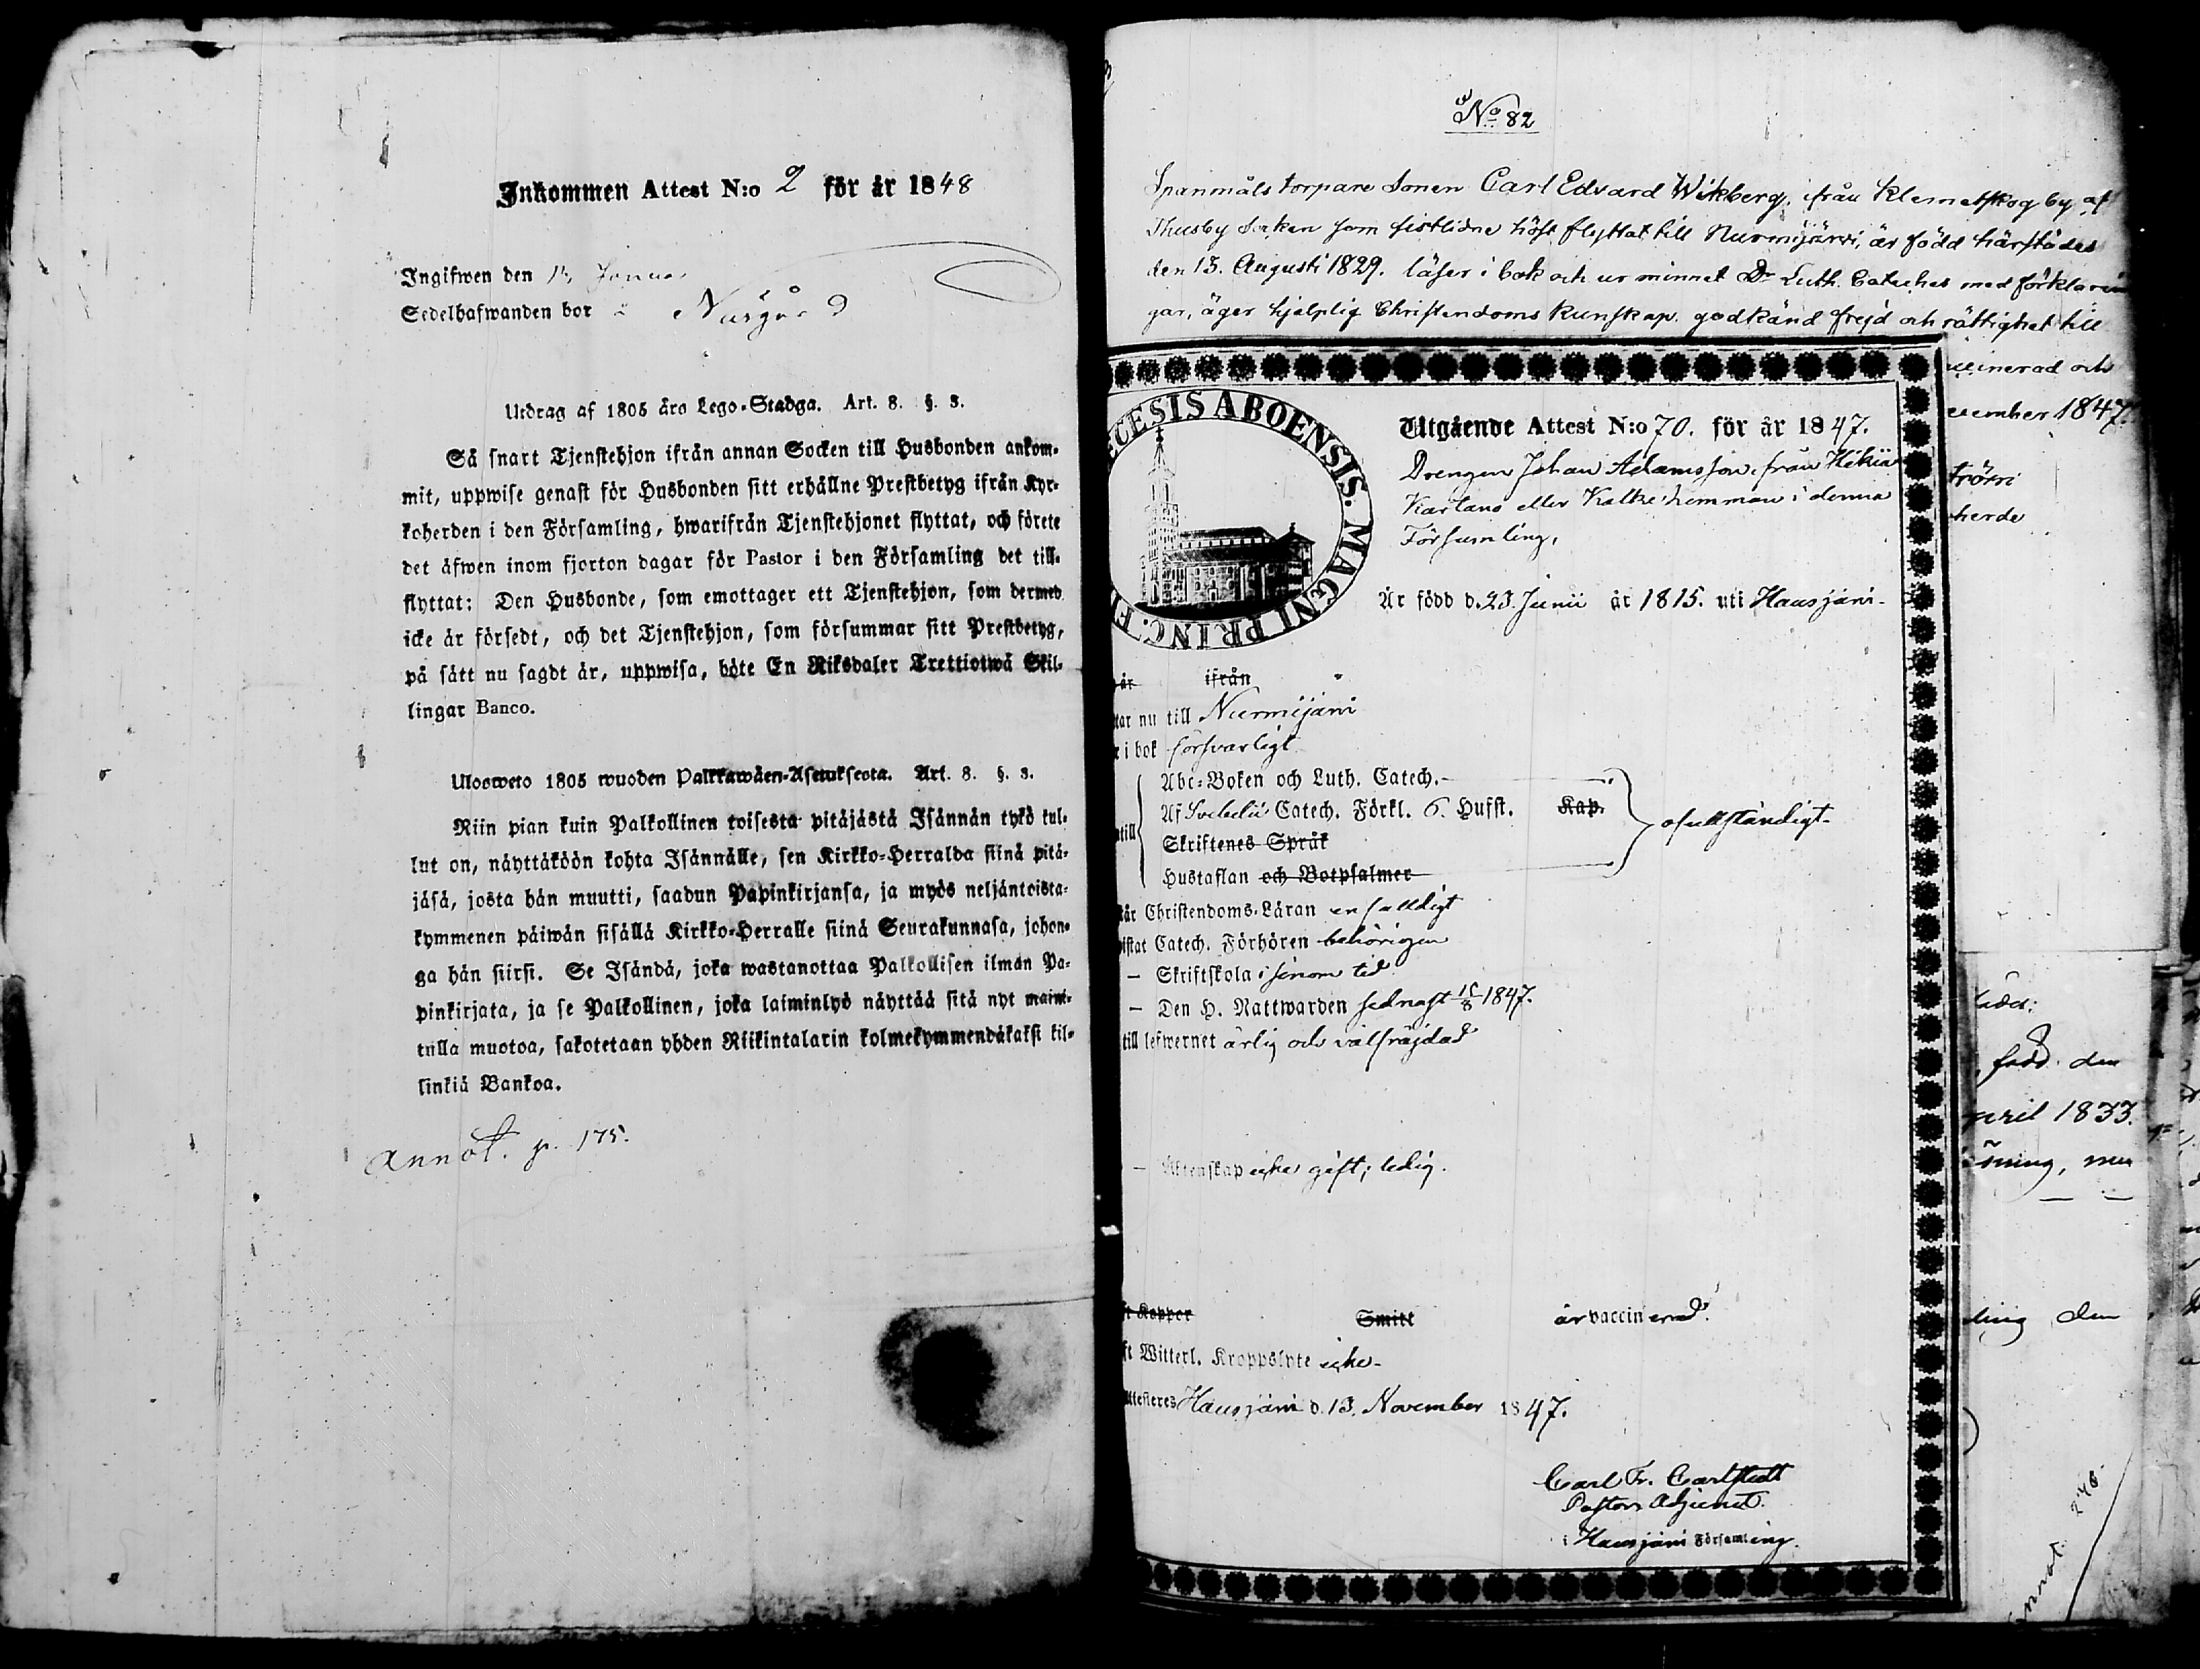 Inkommen Attest N:o 2 för år 1848
Ingifwen den
Sedelhafwanden bor
Utdrag af 1805 års Lego-Stadga. Art. 8. §. 3.
Så snart Tjenstehjon ifrån annan Socken till Husbonden ankom-
mit, uppwise genast för Husbonden sitt erhållne Prestbetyg ifrån Kyr-
koherden i den Församling, hwarifrån Tjenstehjonet flyttat, och förete
det äfwen inom fjorton dagar för Pastor i den Församling det till-
flyttat: Den Husbonde, som emottager ett Tjenstehjon, som dermed
icke är försedt, och det Tjenstehjon, som försummar sitt Prestbetyg,
på sätt nu sagdt är, uppwisa, böte En Riksdaler Trettiotwå Skil-
lingar Banco.
Ulosweto 1805 wuoden Palkkawäen-Asetuksesta. Art. 8. §. 3.
Niin pian kuin Palkollinen toisesta pitäjästä Isännän tykö tul-
lut on, näyttäköön kohta Isännälle, sen Kirkko-Herralda siinä pitä-
jäsä, josta hän muutti, saadun Papinkirjansa, ja myös neljäntoista-
kymmenen päiwän sisällä Kirkko-Herralle siinä Seurakunnasa, johon-
ga hän siirsi. Se Isändä, joka wastanottaa Palkollisen ilman Pa-
pinkirjata, ja se Palkollinen, joka laiminlyö näyttää sitä nyt mainit-
tulla muotoa, sakotetaan yhden Riikintalarin kolmekymmendäkaksi kil-
linkiä Bankoa.
Annot. p. 175.
No 82
Spanmåls torpare Sonen Carl Edvard Wikberg, ifrån Klemetskog by af
Thusby Socken som sistlidne höst flyttat till Nurmijärvi, är född härstädes
den 13. Augusti 1829. läser i bok och ur minnet Dr Luth. Cateches med förklarin
gar, äger hjelplig Christendoms kunskap. godkänd frejd och rättighet till
ccinerad och
cember 1847.
herde
CESIS ABOENSIS. MAGNI PRINC. F
Utgående Attest N:o 70. för år 1847.
Drengen Johan Adamsson, från Hikiä
Karlans eller Kalke hemman i denna
Församling,
Är född d. 23. Junii år 1815. uti Hausjärvi
är ifrån
tar nu till Nurmijärvi
r i bok försvarligt
Abc-Boken och Luth. Catech.
Af Svebelii Catech. Förkl. 6. Hufst. Kap.
ntill
Skriftenes Språk
ofullständigt.
Hustaflan och Botpsalmer
tår Christendoms-Läran enfalldigt
istat Catech. Förhören behörigen
– Skriftskola i sinom tid
– Den H. Nattwarden sednast 15/8 1847.
till lefwernet ärlig och välfräjdad
– Äktenskap icke gift; ledig.
ft Koppor Smitt är vaccinerad.
ft Witterl. Kroppslyte icke
Attesteres Hausjärvi d. 13. November 1847.
Carl Fr. Carlstedt
Pastors Adjunct.
i Hausjärvi Församling.
född den
april 1833.
ling den
Annot. 246.